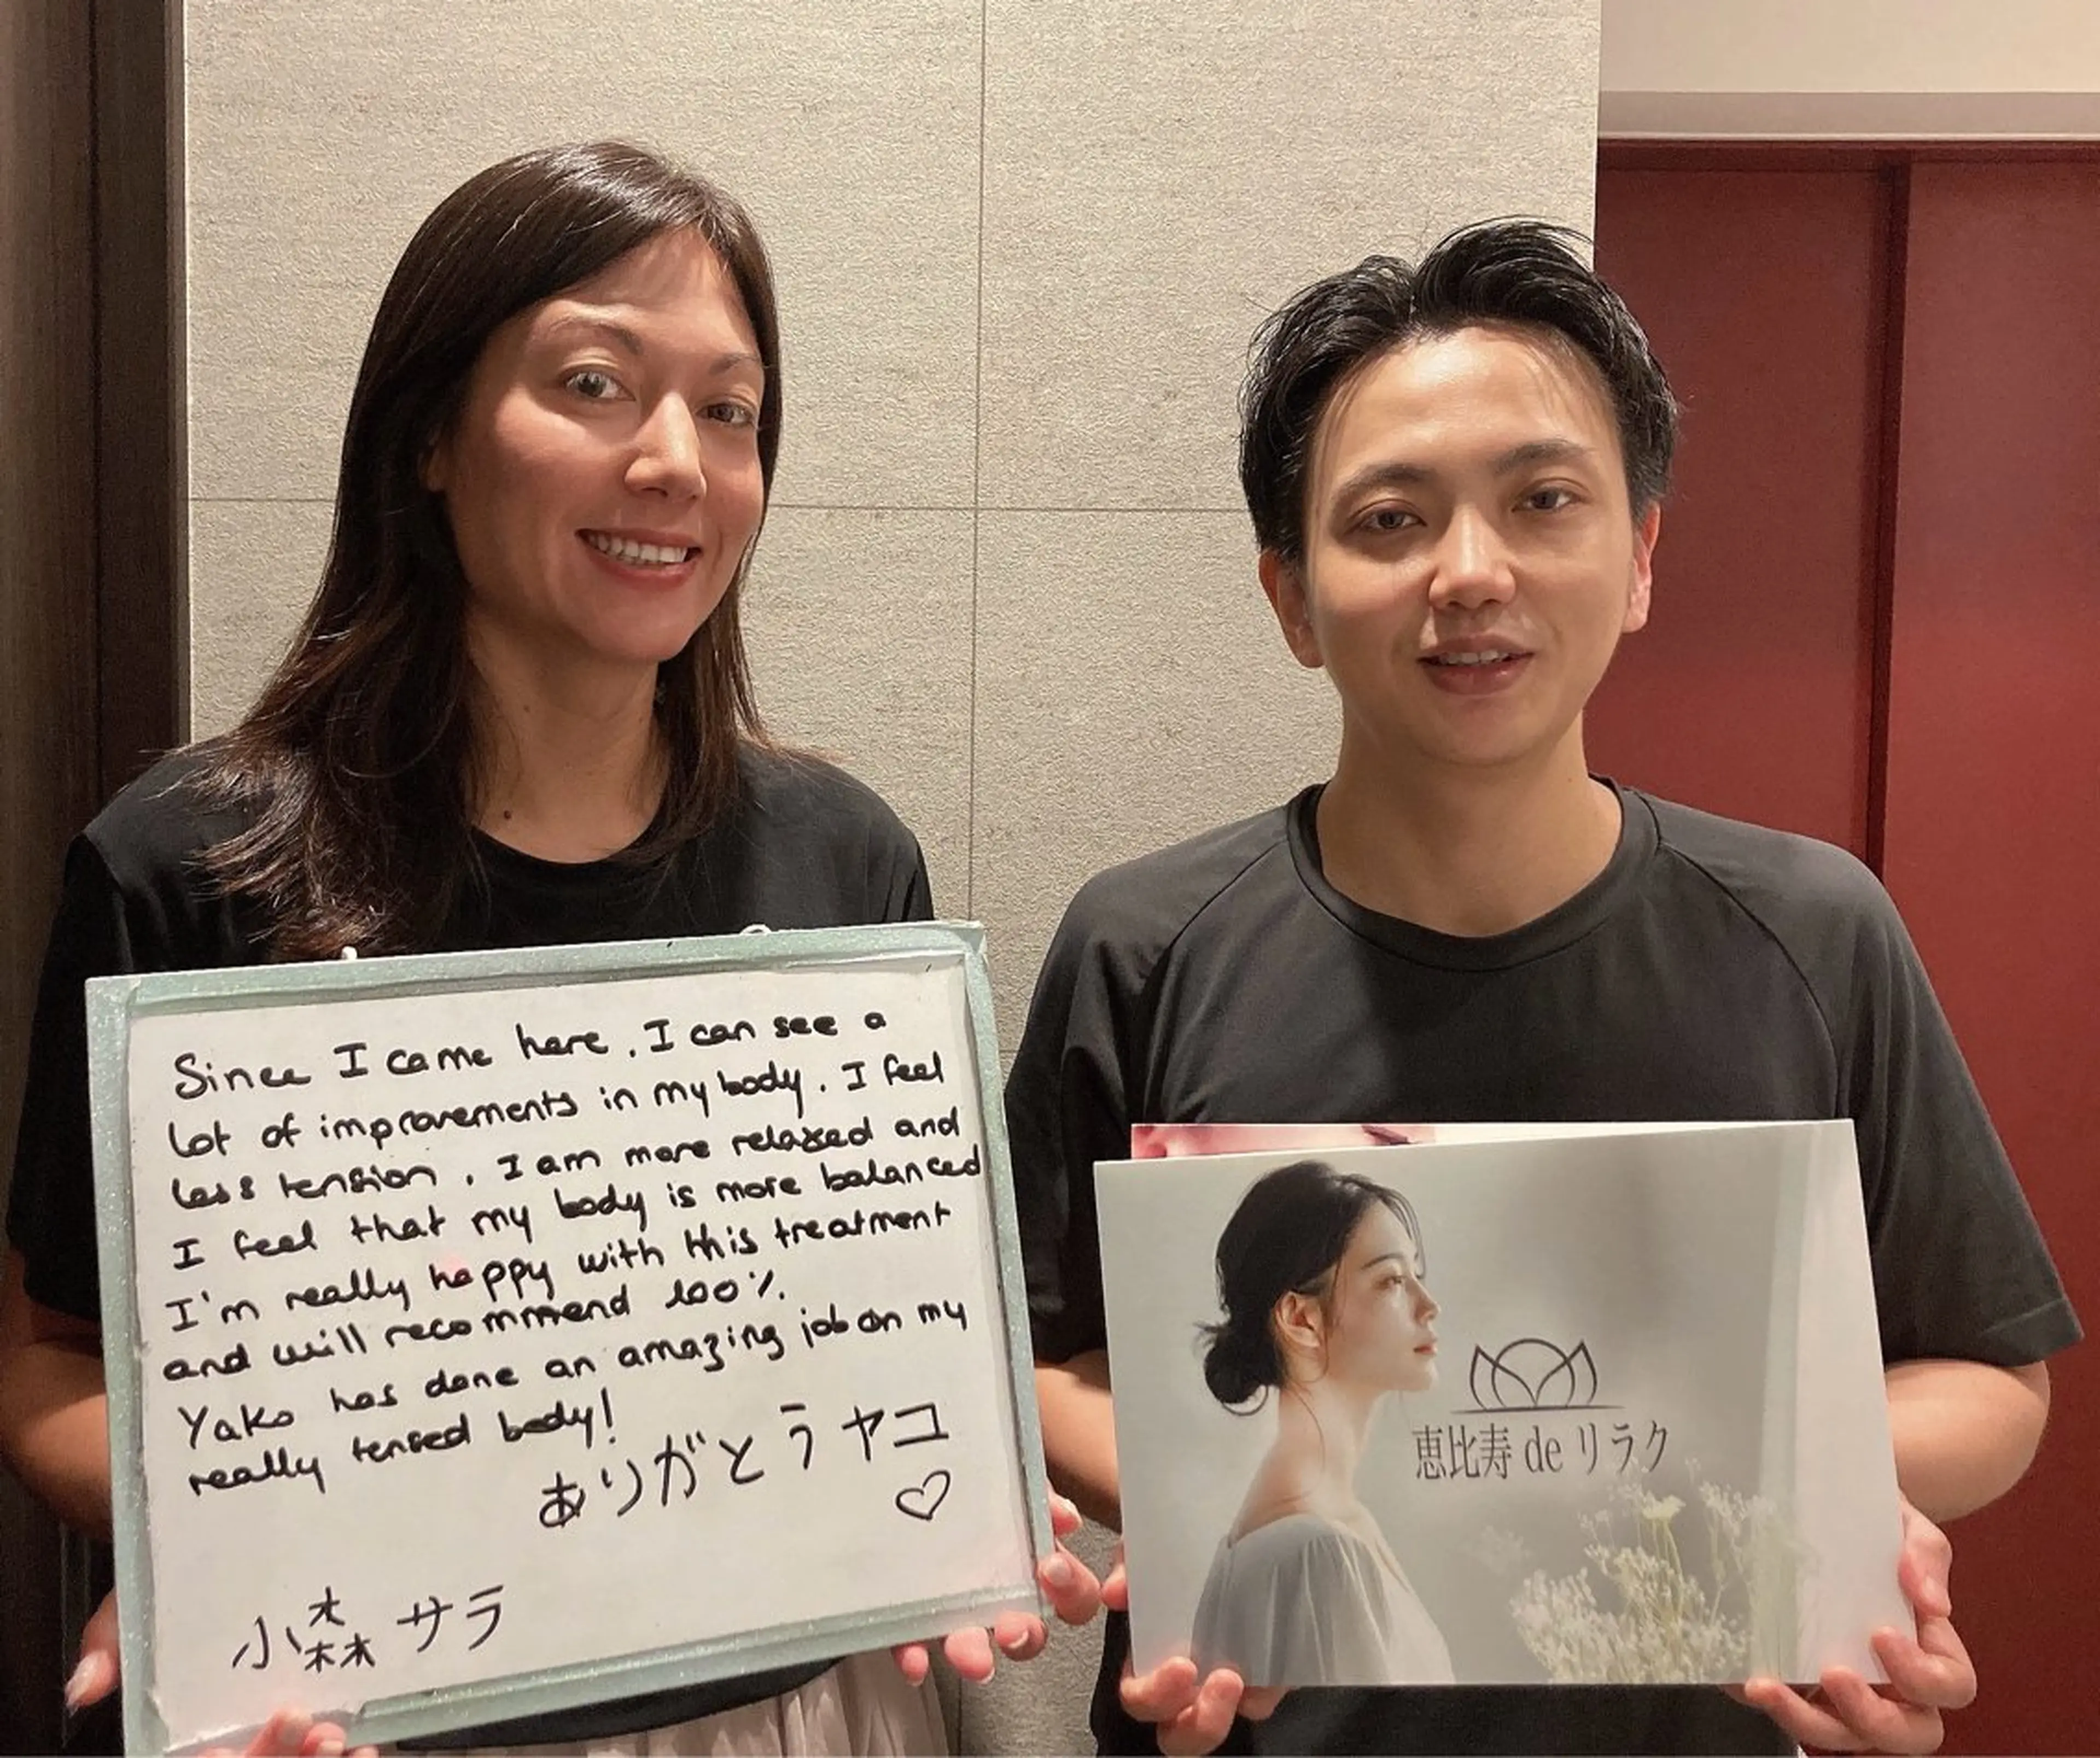 Since I came here. I can see a
lot of improvements in my body. I feel
less tension. I am more relaxed and
I feel that my body is more balanced
I'm really happy with this treatment
and will recommend 100%.
Yako has done an amazing job on my
really tensed body!
ありがとう ヤコ
小森 サラ
恵比寿 de リラク